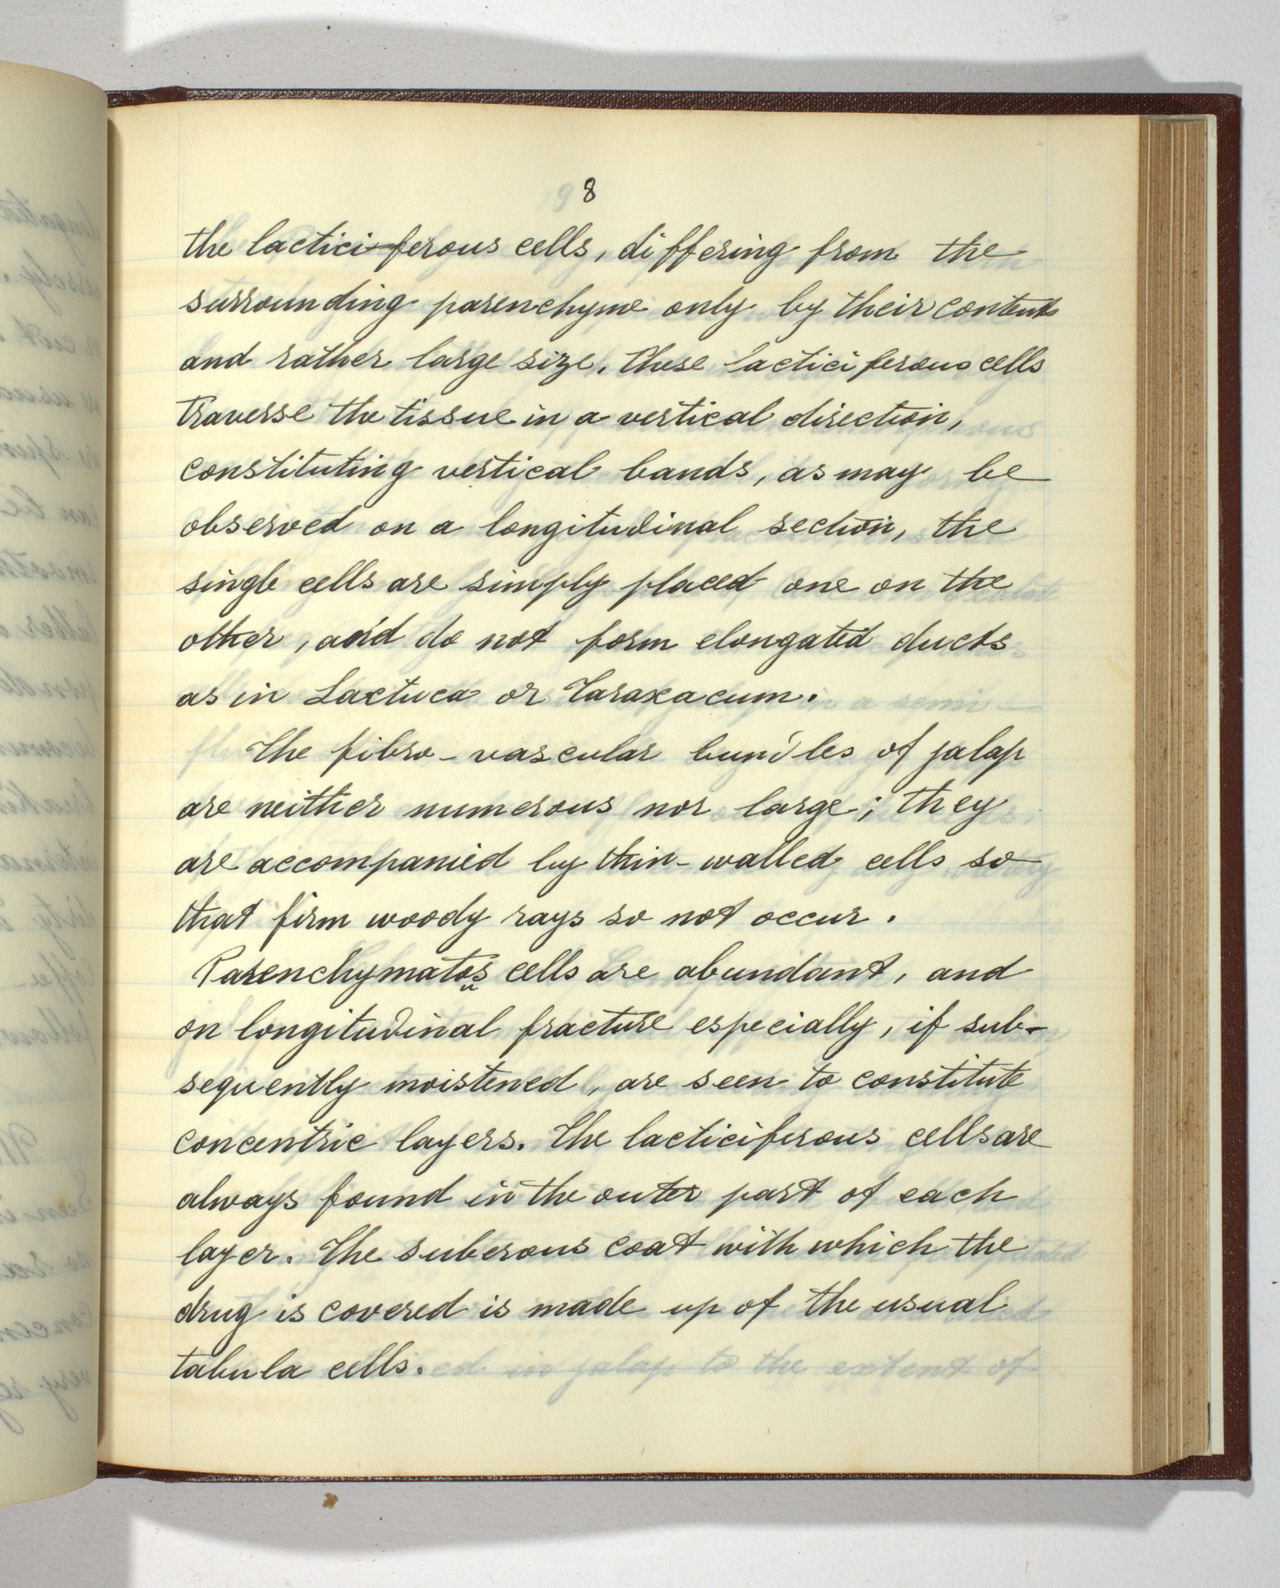 8
the lactici-ferous cells, differing from the
surrounding parenchyme only by their contents
and rather large size. These lacticiferous cells
traverse the tissue in a vertical direction,
constituting vertical bands, as may be
observed on a longitudinal section, the
single cells are simply placed one on the
other, and do not form elongated ducts
as in Lactuca or Taraxacum.
The fibro-vascular bundles of jalap
are neither numerous nor large; they
are accompanied by thin-walled cells so
that firm woody rays so not occur.
Parenchymatos cells are abundant, and
on longitudinal fracture especially, if sub-
sequently moistened, are seen to constitute
concentric layers. The lacticiferous cells are
always found in the outer part of each
layer. The suberous coat with which the
drug is covered is made up of the usual
tabula cells.